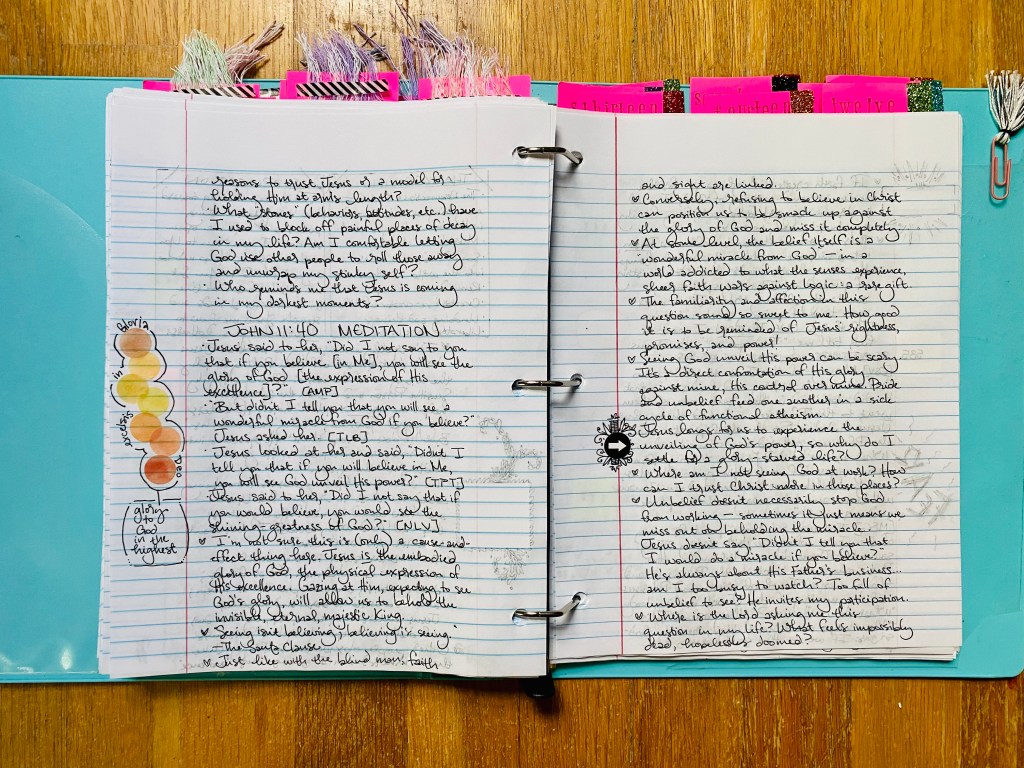 thirteen
fourteen
twelve
reasons to trust Jesus or a model for
holding Him at arms length?
· What "stones" (behaviors, attitudes, etc.) have
I used to block off painful places of decay
in my life? Am I comfortable letting
God use other people to roll those away
and unwrap my stinky self?
· Who reminds me that Jesus is coming
in my darkest moments?
JOHN 11:40 MEDITATION
· Jesus said to her, "Did I not say to you
that if you believe [in Me], you will see the
glory of God [the expression of His
excellence]?" [AMP]
· "But didn't I tell you that you will see a
wonderful miracle from God if you believe?"
Jesus asked her. [TLB]
· Jesus looked at her and said, "Didn't I
tell you that if you will believe in Me,
you will see God unveil His power?" [TPT]
· Jesus said to her, "Did I not say that if
you would believe, you would see the
shining-greatness of God?" [NLV]
♥ I'm not sure this is (only) a cause-and-
effect thing here. Jesus is the embodied
glory of God, the physical expression of
His excellence. Gazing at Him, expecting to see
God's glory, will allow us to behold the
invisible, eternal, majestic King.
♥ "Seeing isn't believing; believing is seeing."
-The Santa Clause
♥ Just like with the blind man, faith
Gloria
in
excelsis
Deo
glory
to
God
in the
highest
and sight are linked.
♥ Conversely, refusing to believe in Christ
can position us to be smack up against
the glory of God and miss it completely.
♥ At some level, the belief itself is a
wonderful miracle from God - in a
world addicted to what the senses experience,
sheer faith wars against logic: a rare gift.
♥ The familiarity and affection in this
question sound so sweet to me. How good
it is to be reminded of Jesus' rightness,
promises, and power!
♥ Seeing God unveil His power can be scary.
It's a direct confrontation of His glory
against mine, His control over mine. Pride
and unbelief feed one another in a sick
cycle of functional atheism.
Jesus longs for us to experience the
unveiling of God's power, so why do I
settle for a glory-starved life?
♥ Where am I not seeing God at work? How
can I trust Christ more in those places?
♥ Unbelief doesn't necessarily stop God
from working - sometimes it just means we
miss out on beholding the miracle.
Jesus doesn't say, "Didn't I tell you that
I would do a miracle if you believe?"
He's always about His Father's business...
am I too busy to watch? Too full of
unbelief to see? He invites my participation.
♥ Where is the Lord asking me this
question in my life? What feels impossibly
dead, hopelessly doomed?